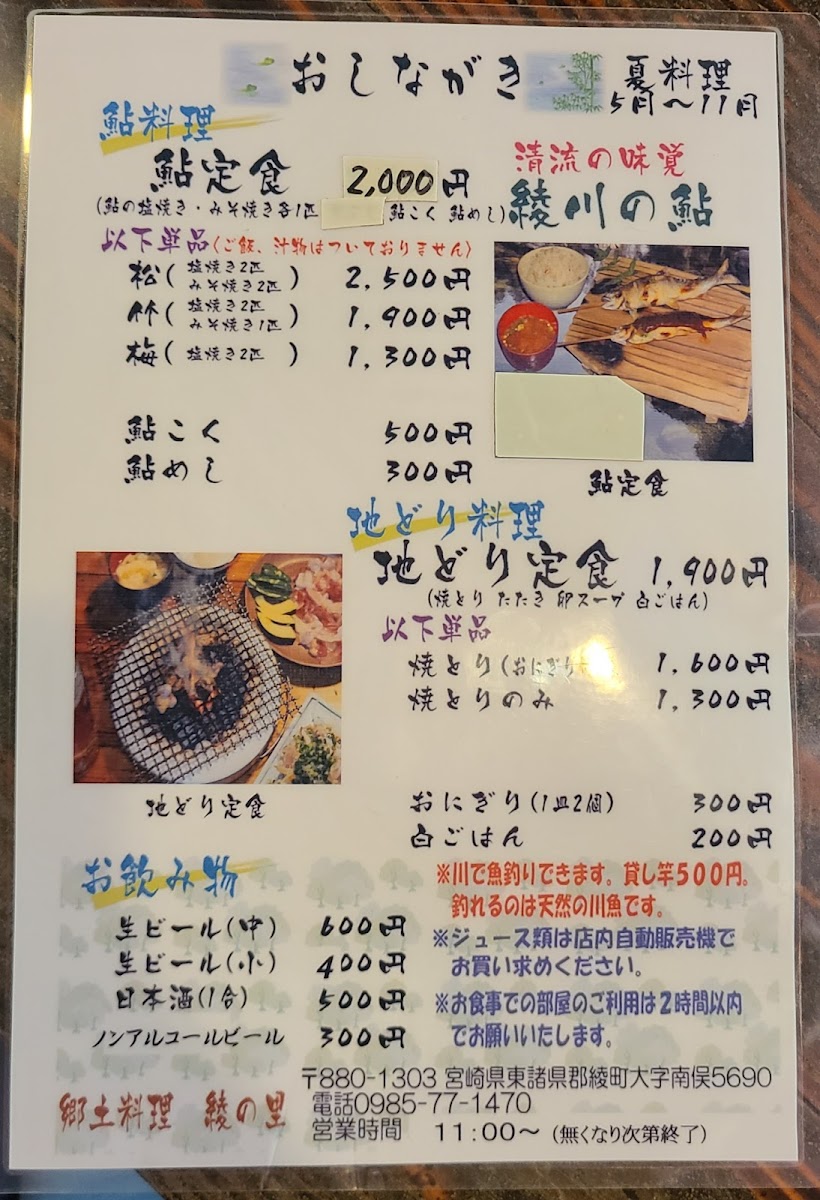 おしながき
夏料理
5月～11月
鮎料理
鮎定食 2,000円
(鮎の塩焼き・みそ焼き各1匹 鮎こく 鮎めし)
清流の味覚
綾川の鮎
以下単品(ご飯、汁物はついておりません)
松(塩焼き2匹 みそ焼き2匹) 2,500円
竹(塩焼き2匹 みそ焼き1匹) 1,900円
梅(塩焼き2匹) 1,300円
鮎こく 500円
鮎めし 300円
鮎定食
地どり料理
地どり定食 1,900円
(焼とり たたき 卵スープ 白ごはん)
以下単品
焼とり(おにぎり 1,600円
焼とりのみ 1,300円
地どり定食
おにぎり(1皿2個) 300円
白ごはん 200円
お飲み物
生ビール(中) 600円
生ビール(小) 400円
日本酒(1合) 500円
ノンアルコールビール 300円
※川で魚釣りできます。貸し竿500円。
釣れるのは天然の川魚です。
※ジュース類は店内自動販売機で
お買い求めください。
※お食事での部屋のご利用は2時間以内
でお願いいたします。
郷土料理 綾の里
〒880-1303 宮崎県東諸県郡綾町大字南俣5690
電話0985-77-1470
営業時間 11:00～(無くなり次第終了)